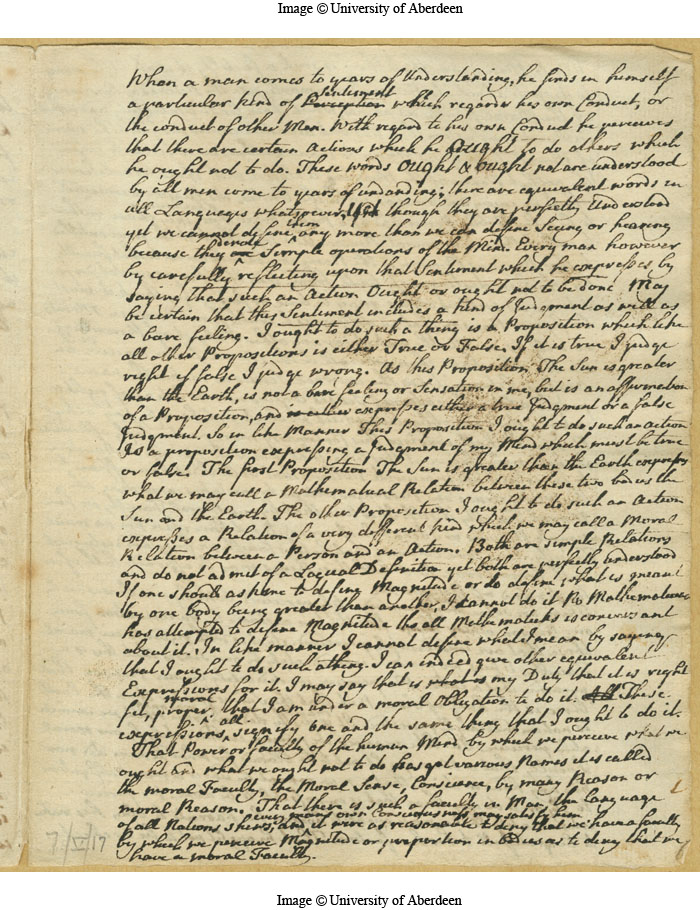 Image © University of Aberdeen
When a man comes to years of Understanding, he finds in himself
sentiment
a particular kind of Perception which regards his own Conduct, or
the conduct of other Men. With regard to his own Conduct he perceives
that there are certain Actions which he Ought to do others which
he ought not to do. These words Ought & Ought not are understood
by all men come to years of undanding; there are equivalent words in
all Languages whatsoever, though they are perfectly Understood
them
yet we cannot define any more than we can define Seeing or hearing
denote
because they are Simple operations of the Mind. Every man however
by carefully reflecting upon that Sentiment which he expresses, by
saying that such an Action Ought or ought not to be done May
be certain that this Sentiment includes a kind of Judgment as well as
a bare feeling. I ought to do such a thing is a Proposition which like
all other Propositions is either True or False. If it is true I judge
right if false I judge wrong. As this Proposition The Sun is greater
than the Earth, is not a bare feeling or Sensation in me, but is an affirmation
of a Proposition, and is either expresses either a true Judgment or a false
Judgment. So in like Manner This Proposition I ought to do such an action
Is a proposition expressing a Judgment of my Mind which must be true
or false. The first Proposition The Sun is greater than the Earth expresses
what we may call a Mathematical Relation between these two bodies the
Sun and the Earth. The other Proposition I ought to do such an Action
expresses a Relation of a very different kind which we may call a Moral
Relation between a Person and an Action. Both are simple Relations
and do not admit of a Logical Definition yet both are perfectly understood
If one should as kme to define Magnitude or to define, what is meant
by one body being greater than another, I cannot do it No Mathematician
has attempted to define Magnitude tho all Mathematicks is conversant
about it. In like manner I cannot define what I mean by saying
that I ought to do such a thing. I can indeed give other equivalent
Expressions for it. I may say that is what is my Duty that it is right
moral
fit, proper, that I am under a moral Obligation to do it. All These
all
expressions, signify one and the same thing that I ought to do it.
That Power or faculty of the human Mind by which we perceive what we
ought and what we ought not to do has got various Names it is called
the moral Faculty, the Moral Sense, Conscience, by many Reason or
moral Reason. That there is such a faculty in Man, the language
every mans own Consciousness may satisfy him
of all Nations shews, and it were as reasonable to deny that we have a faculty
by which we perceive Magnitude or proportion in bodies as to deny that we
have a moral Faculty.
7/V/17
Image © University of Aberdeen